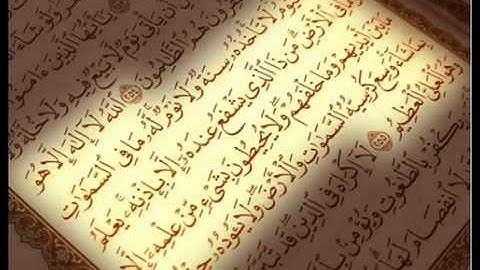 يَٰٓأَيُّهَا ٱلَّذِينَ ءَامَنُوٓا۟
أَن يَأْتِىَ يَوْمٌ لَّا بَيْعٌ فِيهِ وَلَا خُلَّةٌ
هُمُ ٱلظَّٰلِمُونَ ٢٥٤ ٱللَّهُ لَآ إِلَٰهَ إِلَّا هُوَ
لَا تَأْخُذُهُۥ سِنَةٌ وَلَا نَوْمٌ لَّهُۥ مَا فِى ٱلسَّمَٰوَٰتِ
فِى ٱلْأَرْضِ مَن ذَا ٱلَّذِى يَشْفَعُ عِندَهُۥٓ إِلَّا بِإِذْنِهِۦ يَعْلَمُ
بَيْنَ أَيْدِيهِمْ وَمَا خَلْفَهُمْ وَلَا يُحِيطُونَ بِشَىْءٍ مِّنْ عِلْمِهِۦٓ إِلَّا
بِمَا شَآءَ وَسِعَ كُرْسِيُّهُ ٱلسَّمَٰوَٰتِ وَٱلْأَرْضَ وَلَا يَـُٔودُهُۥ
وَهُوَ ٱلْعَلِىُّ ٱلْعَظِيمُ ٢٥٥ لَآ إِكْرَاهَ فِى ٱلدِّينِ قَد تَّبَيَّنَ
يَكْفُرْ بِٱلطَّٰغُوتِ وَيُؤْمِنۢ
لَا ٱنفِصَامَ لَهَا